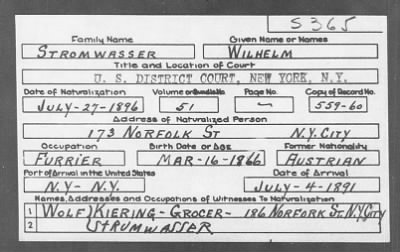 S365
Family Name Given Name or Names
STROMWASSER WILHELM
Title and Location of Court
U. S. DISTRICT COURT, NEW YORK, N.Y.
Date of Naturalization Volume or Bundle No. Page No. Copy of Record No.
JULY-27-1896 51 ~ 559-60
Address of Naturalized Person
173 NORFOLK ST N.Y. CITY
Occupation Birth Date or Age Former Nationality
FURRIER MAR-16-1866 AUSTRIAN
Port of Arrival in the United States Date of Arrival
N.Y- N.Y. JULY-4-1891
Names, Addresses and Occupations of Witnesses To Naturalization
1 WOLF) KIERING- GROCER- 186 NORFORK ST. N.Y. City
2 (STRUMWASSER